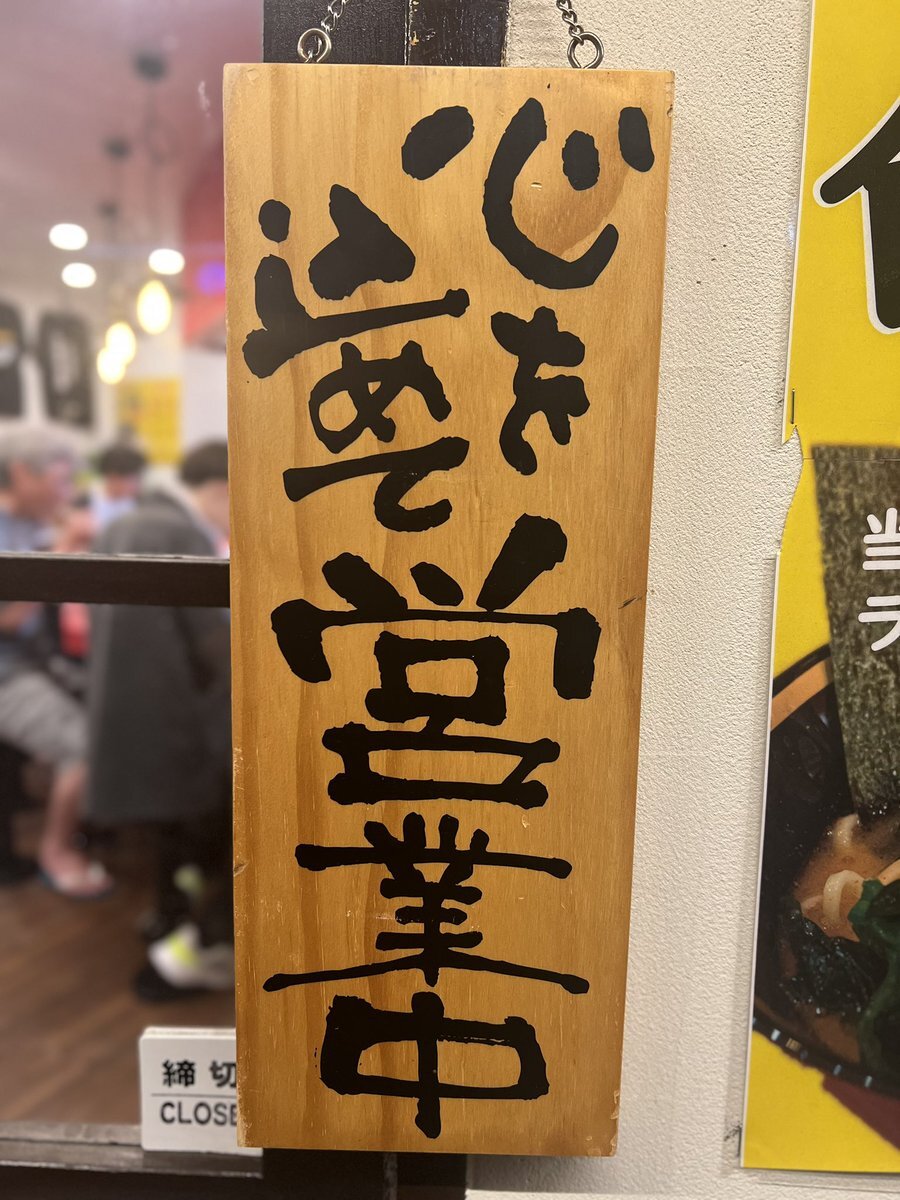 心を
込めて
営業中
締切
CLOSE